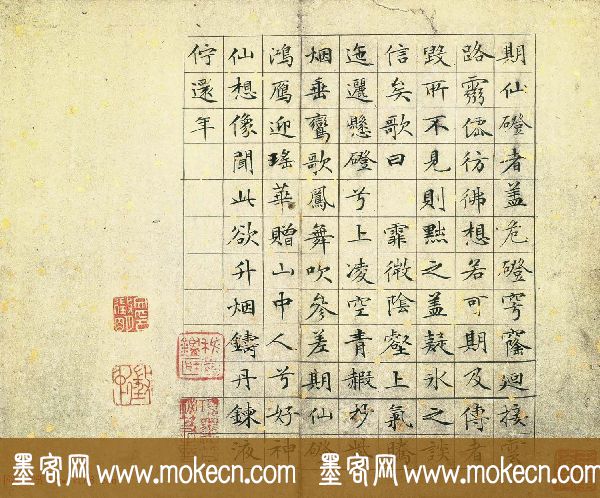 期仙磴者盖危磴穹窿迴接雲
路霛僊彷彿想若可期及傳者
毀所不見則黜之盖疑氷之談
信矣歌曰 霏微陰壑上氣騰
迤邐懸磴兮上凌空青赮杪
烟垂鸞歌鳳舞吹參差期仙磴
鴻鴈迎瑤華贈山中人兮好神
仙想像聞此欲升烟鑄丹鍊液
佇還年
墨客网 www.mokecn.com 墨客网 www.mokecn.com